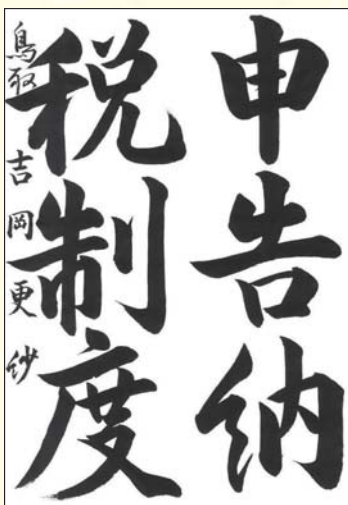 申告納
税制度
鳥取 吉岡更紗